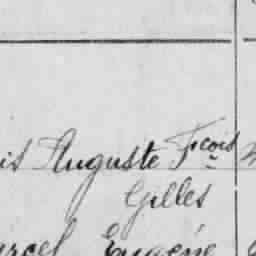 is Auguste Fcois
Gilles
arcel Eugène